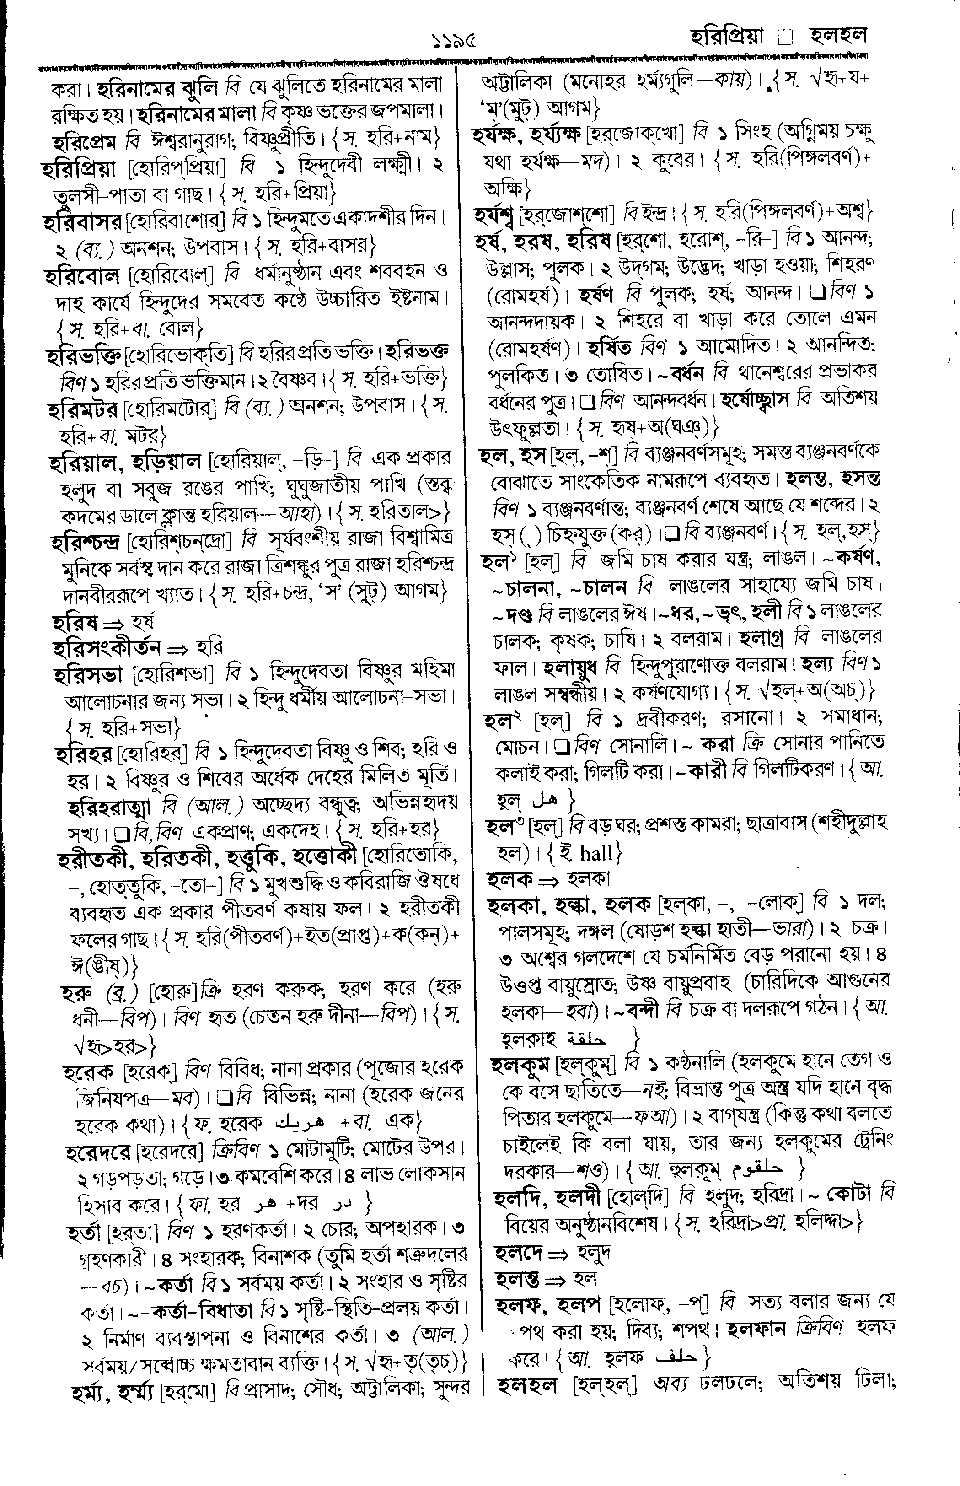 ১১৯৫
হরিপ্রিয়া □ হলহল
করা। হরিনামের ঝুলি বি যে ঝুলিতে হরিনামের মালা
রক্ষিত হয়। হরিনামের মালা বি কৃষ্ণ ভক্তের জপমালা।
হরিপ্রেম বি ঈশ্বরানুরাগ; বিষ্ণুপ্রীতি। {স. হরি+নাম}
হরিপ্রিয়া [হোরিপ্‌প্রিয়া] বি ১ হিন্দুদেবী লক্ষ্মী। ২
তুলসী-পাতা বা গাছ। {স. হরি+প্রিয়া}
হরিবাসর [হোরিবাশোর] বি ১ হিন্দুমতে একাদশীর দিন।
২ (ব্য.) অনশন; উপবাস। {স. হরি+বাসর}
হরিবোল [হোরিবোল্] বি ধর্মানুষ্ঠান এবং শববহন ও
দাহ কার্যে হিন্দুদের সমবেত কণ্ঠে উচ্চারিত ইষ্টনাম।
{স. হরি+বা. বোল}
হরিভক্তি [হোরিভোক্‌তি] বি হরির প্রতি ভক্তি। হরিভক্ত
বিণ ১ হরির প্রতি ভক্তিমান। ২ বৈষ্ণব। {স. হরি+ভক্তি}
হরিমটর [হোরিমটোর] বি (ব্য.) অনশন; উপবাস। {স.
হরি+বা. মটর}
হরিয়াল, হড়িয়াল [হোরিয়াল্, -ড়ি-] বি এক প্রকার
হলুদ বা সবুজ রঙের পাখি; ঘুঘুজাতীয় পাখি (স্তব্ধ
কদমের ডালে ক্লান্ত হরিয়াল—আহা)। {স. হরিতাল>}
হরিশ্চন্দ্র [হোরিশ্‌চন্‌দ্রো] বি সূর্যবংশীয় রাজা বিশ্বামিত্র
মুনিকে সর্বস্ব দান করে রাজা ত্রিশঙ্কুর পুত্র রাজা হরিশ্চন্দ্র
দানবীররূপে খ্যাত। {স. হরি+চন্দ্র, ‘স’ (সুট্) আগম}
হরিষ ⇒ হর্ষ
হরিসংকীর্তন ⇒ হরি
হরিসভা [হোরিশভা] বি ১ হিন্দুদেবতা বিষ্ণুর মহিমা
আলোচনার জন্য সভা। ২ হিন্দু ধর্মীয় আলোচনা-সভা।
{স. হরি+সভা}
হরিহর [হোরিহর্] বি ১ হিন্দুদেবতা বিষ্ণু ও শিব; হরি ও
হর। ২ বিষ্ণুর ও শিবের অর্ধেক দেহের মিলিত মূর্তি।
হরিহরাত্মা বি (আল.) অচ্ছেদ্য বন্ধুত্ব; অভিন্নহৃদয়
সখ্য। □ বি, বিণ একপ্রাণ; একদেহ। {স. হরি+হর}
হরীতকী, হরিতকী, হত্তুকি, হত্তোকী [হোরিতোকি,
-, হোত্‌তুকি, -তো-] বি ১ মুখশুদ্ধি ও কবিরাজি ঔষধে
ব্যবহৃত এক প্রকার পীতবর্ণ কষায় ফল। ২ হরীতকী
ফলের গাছ। {স. হরি(পীতবর্ণ)+ইত(প্রাপ্ত)+ক(কন্)+
ঈ(ঙীষ্)}
হরু (ব্র.) [হোরু] ক্রি হরণ করুক; হরণ করে (হরু
ধনী—বিপ)। বিণ হৃত (চেতন হরু দীনা—বিপ)। {স.
√হৃ>হর>}
হরেক [হরেক্] বিণ বিবিধ; নানা প্রকার (পূজোর হরেক
জিনিষপএ—মব)। □ বি বিভিন্ন; নানা (হরেক জনের
হরেক কথা)। {ফ. হরেক هريك +বা. এক}
হরেদরে [হরেদরে] ক্রিবিণ ১ মোটামুটি; মোটের উপর।
২ গড়পড়তা; গড়ে। ৩ কমবেশি করে। ৪ লাভ লোকসান
হিসাব করে। {ফা. হর هر +দর در }
হর্তা [হর্‌তা] বিণ ১ হরণকর্তা। ২ চোর; অপহারক। ৩
গ্রহণকারী। ৪ সংহারক; বিনাশক (তুমি হর্তা শত্রুদলের
—বচ)। ~কর্তা বি ১ সর্বময় কর্তা। ২ সংহার ও সৃষ্টির
কর্তা। ~-কর্তা-বিধাতা বি ১ সৃষ্টি-স্থিতি-প্রলয় কর্তা।
২ নির্মাণ ব্যবস্থাপনা ও বিনাশের কর্তা। ৩ (আল.)
সর্বময়/সর্বোচ্চ ক্ষমতাবান ব্যক্তি। {স. √হৃ+তৃ(তৃচ্)}
হর্ম্য, হর্ম্ম্য [হর্‌মো] বি প্রাসাদ; সৌধ; অট্টালিকা; সুন্দর
অট্টালিকা (মনোহর হর্ম্যগুলি—কায়)। {স. √হৃ+য+
‘ম’(মুট্) আগম}
হর্যক্ষ, হর্য্যক্ষ [হর্‌জোক্‌খো] বি ১ সিংহ (অগ্নিময় চক্ষু
যথা হর্যক্ষ—মদ)। ২ কুবের। {স. হরি(পিঙ্গলবর্ণ)+
অক্ষি}
হর্যশ্ব [হর্‌জোশ্‌শো] বি ইন্দ্র। {স. হরি(পিঙ্গলবর্ণ)+অশ্ব}
হর্ষ, হরষ, হরিষ [হর্‌শো, হরোশ্, -রি-] বি ১ আনন্দ;
উল্লাস; পুলক। ২ উদ্‌গম; উদ্ভেদ; খাড়া হওয়া; শিহরণ
(রোমহর্ষ)। হর্ষণ বি পুলক; হর্ষ; আনন্দ। □ বিণ ১
আনন্দদায়ক। ২ শিহরে বা খাড়া করে তোলে এমন
(রোমহর্ষণ)। হর্ষিত বিণ ১ আমোদিত। ২ আনন্দিত;
পুলকিত। ৩ তোষিত। ~বর্ধন বি থানেশ্বরের প্রভাকর
বর্ধনের পুত্র। □ বিণ আনন্দবর্ধন। হর্ষোচ্ছ্বাস বি অতিশয়
উৎফুল্লতা। {স. হৃষ্+অ(ঘঞ্)}
হল্, হস্ [হল্, -শ্] বি ব্যঞ্জনবর্ণসমূহ; সমস্ত ব্যঞ্জনবর্ণকে
বোঝাতে সাংকেতিক নামরূপে ব্যবহৃত। হলন্ত, হসন্ত
বিণ ১ ব্যঞ্জনবর্ণান্ত; ব্যঞ্জনবর্ণ শেষে আছে যে শব্দের। ২
হস্ (্) চিহ্নযুক্ত (কর্)। □ বি ব্যঞ্জনবর্ণ। {স. হল্, হস্}
হল১ [হল্] বি জমি চাষ করার যন্ত্র; লাঙল। ~কর্ষণ,
~চালনা, ~চালন বি লাঙলের সাহায্যে জমি চাষ।
~দণ্ড বি লাঙলের ঈষ। ~ধর, ~ভৃৎ, হলী বি ১ লাঙলের
চালক; কৃষক; চাষি। ২ বলরাম। হলাগ্র বি লাঙলের
ফাল। হলায়ুধ বি হিন্দুপুরাণোক্ত বলরাম। হল্য বিণ ১
লাঙল সম্বন্ধীয়। ২ কর্ষণযোগ্য। {স. √হল্+অ(অচ্)}
হল২ [হল্] বি ১ দ্রবীকরণ; রসানো। ২ সমাধান;
মোচন। □ বিণ সোনালি। ~ করা ক্রি সোনার পানিতে
কলাই করা; গিলটি করা। ~কারী বি গিলটিকরণ। {আ.
হল্ هل }
হল৩ [হল্] বি বড় ঘর; প্রশস্ত কামরা; ছাত্রাবাস (শহীদুল্লাহ
হল)। {ই. hall}
হলক ⇒ হলকা
হলকা, হল্কা, হলক [হল্‌কা, -, -লোক্] বি ১ দল;
পালসমূহ; দঙ্গল (ষোড়শ হল্কা হাতী—ভারা)। ২ চক্র।
৩ অশ্বের গলদেশে যে চর্মনির্মিত বেড় পরানো হয়। ৪
উওপ্ত বায়ুস্রোত; উষ্ণ বায়ুপ্রবাহ (চারিদিকে আগুনের
হলকা—হবা)। ~বন্দী বি চক্র বা দলরূপে গঠন। {আ.
হলকাহ حلقة }
হলকুম [হল্‌কুম্] বি ১ কণ্ঠনালি (হলকুমে হানে তেগ ও
কে বসে ছাতিতে—নই; বিভ্রান্ত পুত্র অস্ত্র যদি হানে বৃদ্ধ
পিতার হলকুমে—ফআ)। ২ বাগযন্ত্র (কিন্তু কথা বলতে
চাইলেই কি বলা যায়, তার জন্য হলকুমের ট্রেনিং
দরকার—শও)। {আ. হুলকূম্ حلقوم }
হলদি, হলদী [হোল্‌দি] বি হলুদ; হরিদ্রা। ~ কোটা বি
বিয়ের অনুষ্ঠানবিশেষ। {স. হরিদ্রা>প্রা. হলিদ্দা>}
হলদে ⇒ হলুদ
হলন্ত ⇒ হল্
হলফ, হলপ [হলোফ্, -প্] বি সত্য বলার জন্য যে
শপথ করা হয়; দিব্য; শপথ। হলফান ক্রিবিণ হলফ
করে। {আ. হলফ حلف }
হলহল [হল্‌হল্] অব্য ঢলঢলে; অতিশয় ঢিলা;